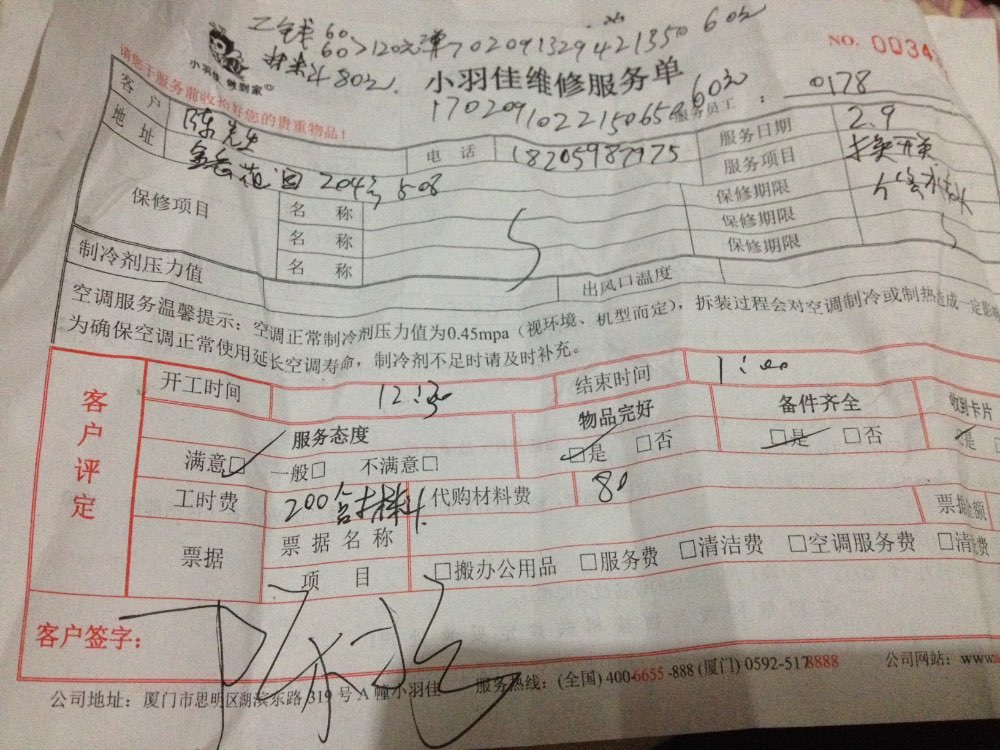 工钱60
60>120元单702091329421350 60元
材料80元
NO. 0034
小羽佳 做到家
小羽佳维修服务单
请您于服务前收拾好您的贵重物品!
170209102215065 60元
服务员工: 0178
客户 陈先生 电话 18205987975 服务日期 2.9
地址 204号508 服务项目 换开关
修水
保修项目 名称 保修期限
名称 保修期限
名称 保修期限
制冷剂压力值 出风口温度
空调服务温馨提示:空调正常制冷剂压力值为0.45mpa(视环境、机型而定),拆装过程会对空调制冷或制热造成一定影
为确保空调正常使用延长空调寿命,制冷剂不足时请及时补充。
客户评定
开工时间 12:30 结束时间 1:00
服务态度 物品完好 备件齐全 收到卡片
满意□ 一般□ 不满意□ □是 □否 □是 □否 □是
工时费 200含材料 代购材料费 80
票据 票据名称 票据金额
项目 □搬办公用品 □服务费 □清洁费 □空调服务费 □清洗费
客户签字:
公司地址:厦门市思明区湖滨东路319号A幢小羽佳 服务热线:(全国)400-6655-888(厦门)0592-5178888 公司网站:www